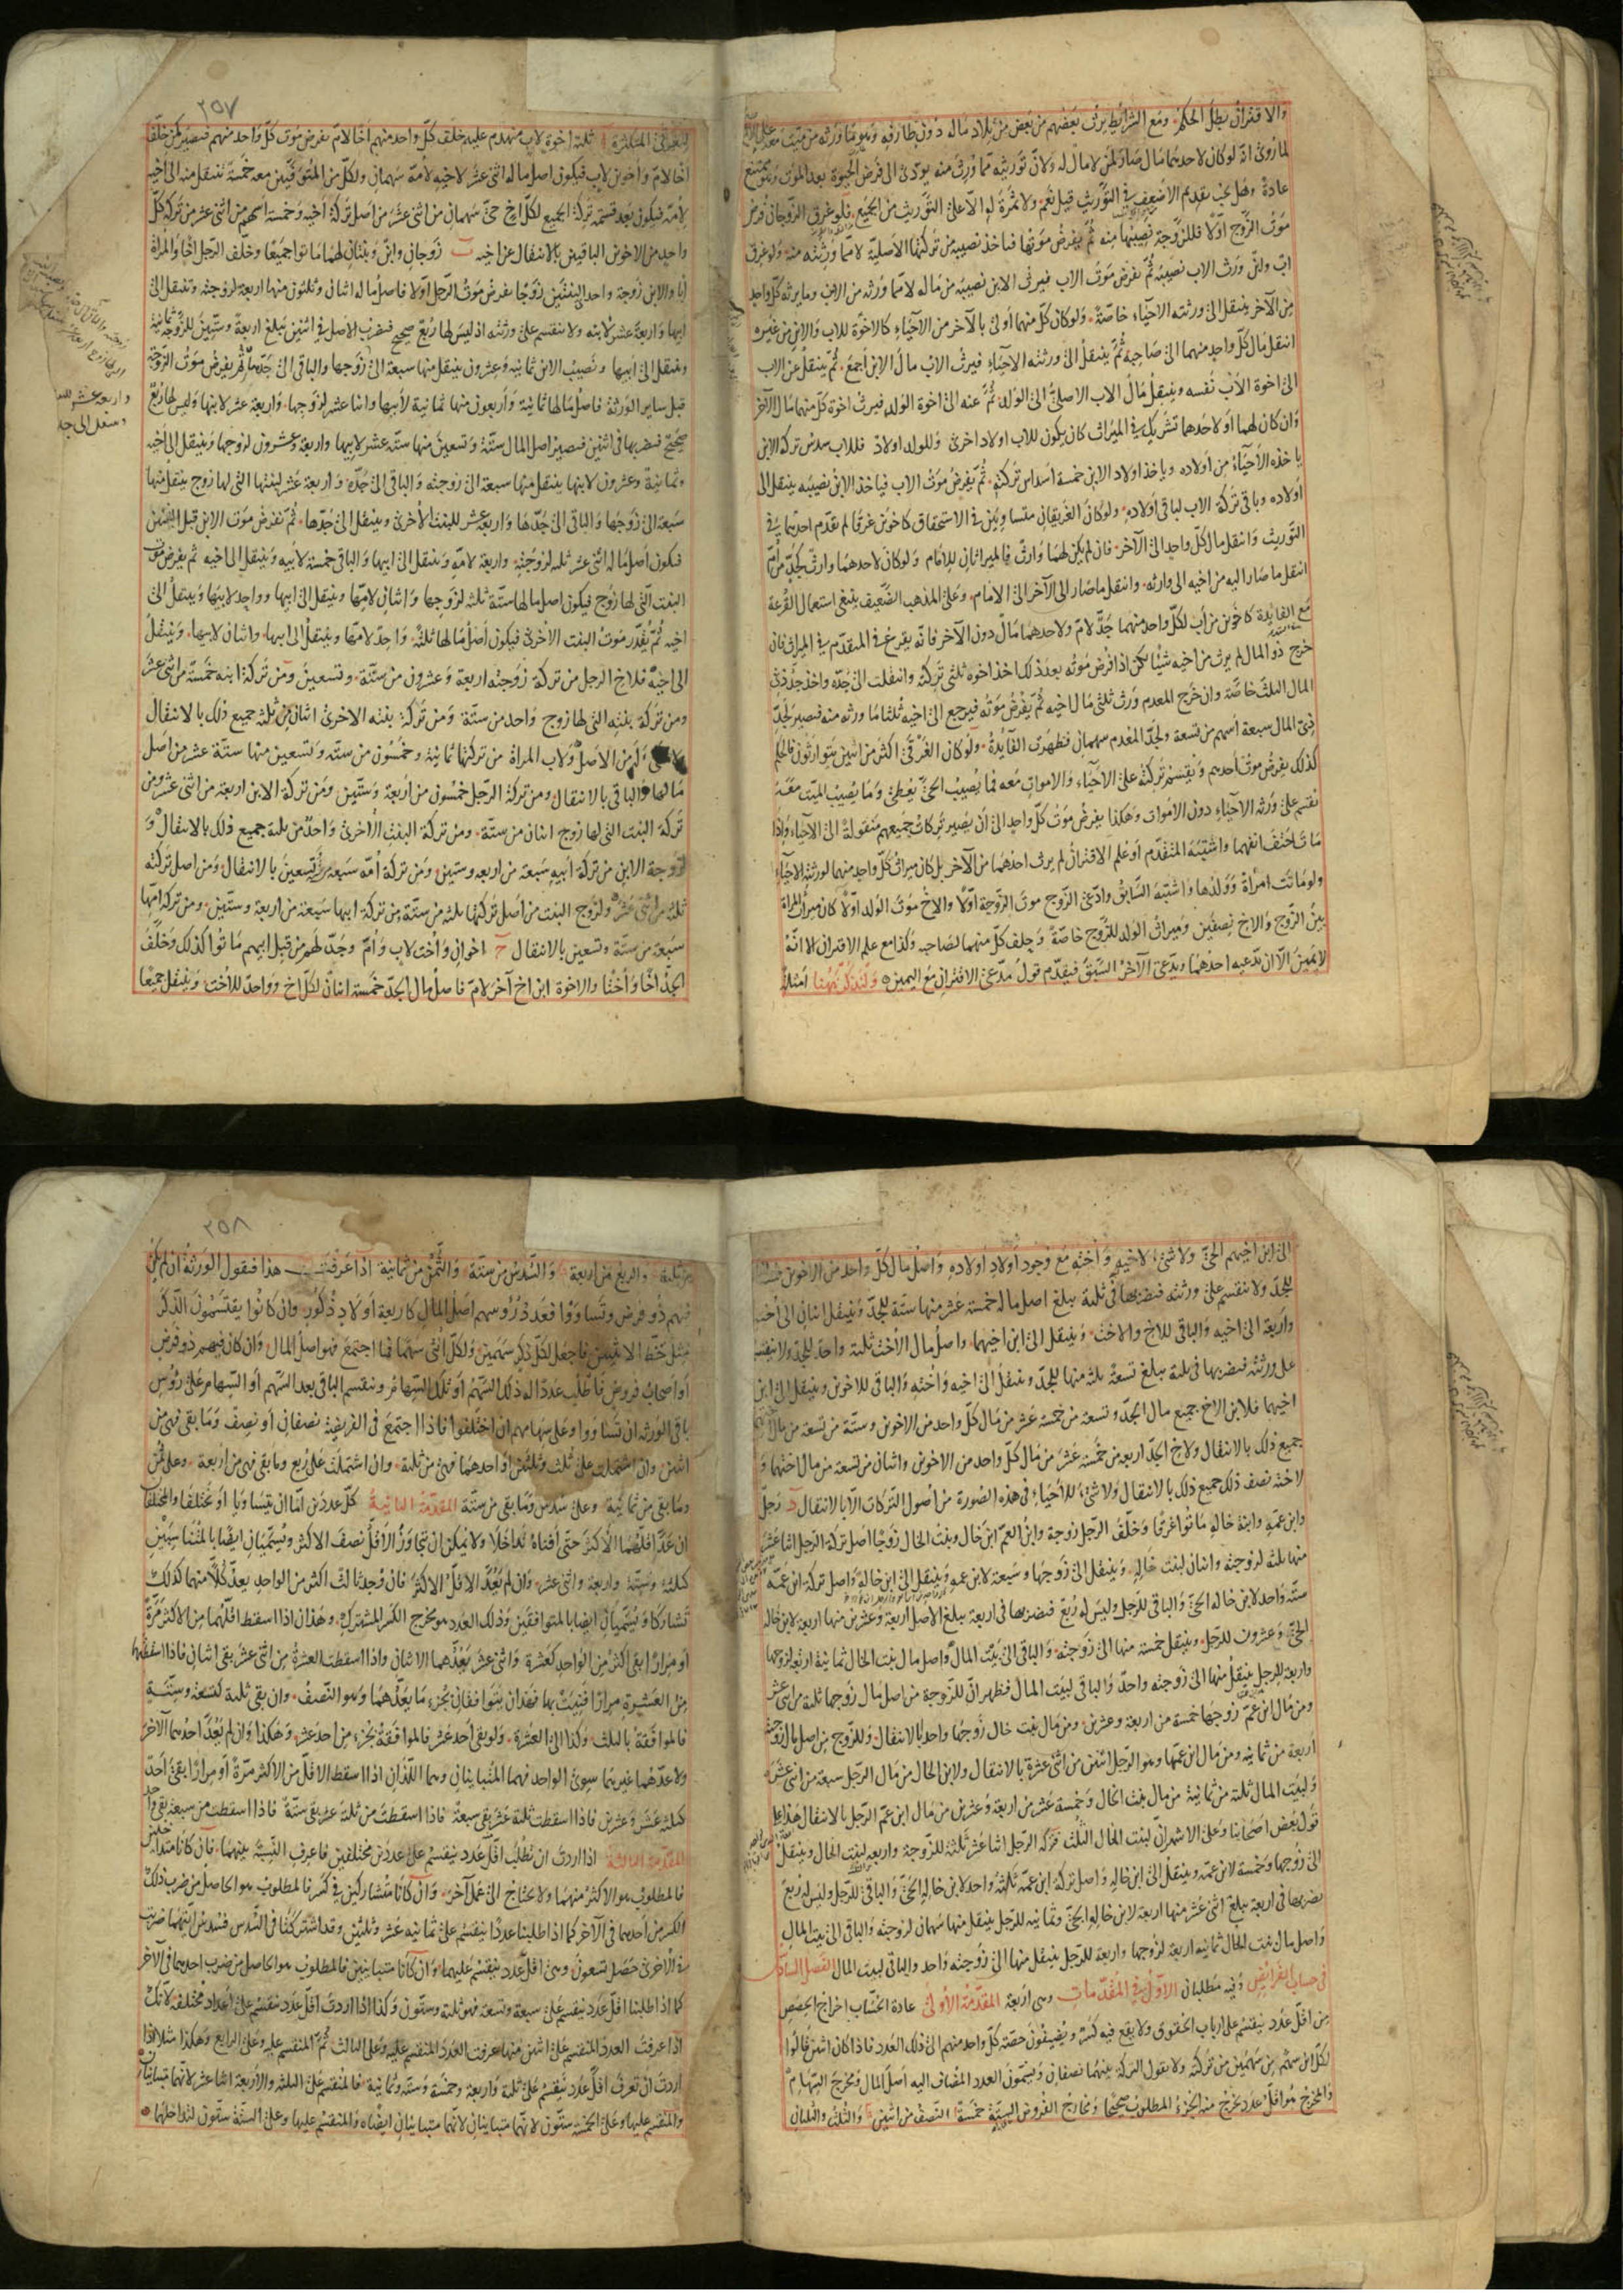 والاقتران بطل الحكم ومع الشرائط يرث بعضهم من بعض من تلاد ماله دون طارفه وهو ما ورثه من ميت معه
لما روي انه لو كان لاحدهما مال صار لمن لا مال له ولان توريثه مما ورث منه يؤدي الى فرض الحيوة بعد الموت وهو ممتنع
عادة وهل يجب تقديم الاضعف في التوريث قيل نعم ولا ثمرة له الا على التوريث من الجميع فلو غرق الزوجان فرض
موت الزوج اولا فللزوجة نصيبها منه ثم يفرض موتها فياخذ نصيبه من تركتها الاصلية لا مما ورثته منه ولو غرق
اب وابن ورث الاب نصيبه ثم يفرض موت الاب فيرث الابن نصيبه من ماله لا مما ورثه من الابن وما يرثه كل واحد
من الآخر ينتقل الى ورثته الاحياء خاصة ولو كان كل منهما اولى بالآخر من الاحياء كالاخوة للاب والابن من غيره
انتقل مال كل واحد منهما الى صاحبه ثم ينتقل الى ورثته الاحياء فيرث الاب مال الابن اجمع ثم ينتقل عن الاب
الى اخوة الابن نفسه وينتقل مال الاب الاصلي الى الولد ثم عنه الى اخوة الولد فيرث اخوة كل منهما مال الآخر
وان كان لهما او لاحدهما شريك في الميراث كان يكون للاب اولاد اخرى وللولد اولاد فللاب سدس تركة الابن
ياخذه الاحياء من اولاده وياخذ اولاد الابن خمسة اسداس تركته ثم يفرض موت الاب فياخذ الابن نصيبه ينتقل الى
اولاده وباقي تركة الاب لباقي اولاده ولو كان الغريقان متساويين في الاستحقاق كاخوين غرقا لم نقدم احدهما في
التوريث وانتقل مال كل واحد الى الآخر فان لم يكن لهما وارث فالميراثان للامام ولو كان لاحدهما وارث كجد من ام
انتقل ما صار اليه من اخيه الى وارثه وانتقل ما صار الى الآخر الى الامام وعلى المذهب الضعيف ينبغي استعمال القرعة
مع الفائدة كاخوين من اب لكل واحد منهما جد لام ولاحدهما مال دون الآخر فانه يقرع في المتقدم في الميراث فان
خرج ذو المال لم يرث من اخيه شيئا لكن اذا فرض موته بعد ذلك اخذ اخوه ثلثي تركته وانتقلت الى جده واخذ جد ذي
المال الثلث خاصة وان خرج المعدم ورث ثلثي مال اخيه ثم يفرض موته فيرجع الى اخيه ثلثا ما ورثه منه فيصير لجد
ذي المال سبعة اسهم من تسعة ولجد المعدم سهمان فظهرت الفائدة ولو كان الغرقى اكثر من اثنين يتوارثون فالحكم
كذلك يفرض موت احدهم ويقسم تركته على الاحياء والاموات معه فما يصيب الحي يعطى وما يصيب الميت معه
يقسم على ورثته الاحياء دون الاموات وهكذا يفرض موت كل واحد الى ان يصير تركات جميعهم منقولة الى الاحياء واذا
ماتا حتف انفهما واشتبه المتقدم او علم الاقتران لم يرث احدهما من الآخر بل كان ميراث كل واحد منهما لورثته الاحياء
ولو ماتت امراة وولدها واشتبه السابق وادعى الزوج موت الزوجة اولا والاخ موت الولد اولا كان ميراث المراة
بين الزوج والاخ نصفين وميراث الولد للزوج خاصة ويحلف كل منهما لصاحبه وكذا مع علم الاقتران الا انه
لا يمين الا ان يدعيه احدهما ويدعي الآخر السبق فيقدم قول مدعي الاقتران مع اليمين ولنذكر ههنا امثلة
٢٥٧
ثلثة اخوة لاب منهدم عليهم خلف كل واحد منهم اخا لام يفرض موت كل واحد منهم فيصير كمن خلف
اخا لام واخوين لاب فيكون اصل ماله اثني عشر لاخيه لامه سهمان ولكل من المتوفيين معه خمسة تنتقل منه الى اخيه
لامه فيكون بعد قسمة تركة الجميع لكل اخ حي سهمان من اثني عشر من اصل تركة اخيه وخمسة اسهم من اثني عشر من تركة كل
واحد من الاخوين الباقيين بالانتقال عن اخيه ب زوجان وابن وبنتان لهما ماتوا جميعا وخلف الرجل اخا والمراة
ابا والابن زوجة واحد البنتين زوجا يفرض موت الرجل اولا فاصل ماله اثنان وثلثون منها اربعة لزوجته وتنتقل الى
ابيها واربعة عشر لابنه ولا تنقسم على ورثته اذ ليس لها ربع صحيح فيضرب الاصل في اثنين يبلغ اربعة وستين للزوجة ثمانية
وينتقل الى ابيها ونصيب الابن ثمانية وعشرون ينتقل منها سبعة الى زوجها والباقي الى جدها ثم يفرض موت الزوجة
قبل ساير الورثة فاصل مالها ثمانية واربعون منها ثمانية لابيها واثنا عشر لزوجها واربعة عشر لابنها وليس لها ربع
صحيح فيضربها في اثنين فيصير اصل المال ستة وتسعين منها ستة عشر لابيها واربعة وعشرون لزوجها وينتقل الى اخيه
وثمانية وعشرون لابنها ينتقل منها سبعة الى زوجته والباقي الى جده واربعة عشر لبنتها التي لها زوج ينتقل منها
سبعة الى زوجها والباقي الى جدها واربعة عشر للبنت الاخرى وينتقل الى جدها ثم يفرض موت الابن قبل البنتين
فيكون اصل ماله اثني عشر ثلثة لزوجته واربعة لامه وينتقل الى ابيها والباقي خمسة لابيه وينتقل الى اخيه ثم يفرض موت
البنت التي لها زوج فيكون اصل مالها ستة ثلثة لزوجها واثنان لامها وينتقل الى ابيها وواحد لابيها وينتقل الى
اخيه ثم يقدر موت البنت الاخرى فيكون اصل مالها ثلثة واحد لامها وينتقل الى ابيها واثنان لابيها وينتقل
الى اخيه فلاخ الرجل من تركة زوجته اربعة وعشرون من ستة وتسعين ومن تركة ابنه خمسة من اثني عشر
ومن تركة بنته التي لها زوج واحد من ستة ومن تركة بنته الاخرى اثنان من ثلثة جميع ذلك بالانتقال
من الاصل ولاب المراة من تركتها ثمانية وخمسون من ستة وتسعين منها ستة عشر من اصل
مالها والباقي بالانتقال ومن تركة الرجل خمسون من اربعة وستين ومن تركة الابن اربعة من اثني عشر ومن
تركة البنت التي لها زوج اثنان من ستة ومن تركة البنت الاخرى واحد من ثلثة جميع ذلك بالانتقال و
لزوجة الابن من تركة ابيه سبعة من اربعة وستين ومن تركة امه سبعة من ستة وتسعين بالانتقال ومن اصل تركته
ثلثة من اثني عشر ولزوج البنت من اصل تركتها ثلثة من ستة من تركة ابيها سبعة من اربعة وستين ومن تركة امها
سبعة من ستة وتسعين بالانتقال ج اخوان واخت لاب وام وجد لهم من قبل ابيهم ماتوا كذلك وخلف
الجد اخا واختا والاخوة ابن اخ آخر لام فاصل مال الجد خمسة اثنان لكل اخ وواحد للاخت وينتقل جميعا
الى ابن اخيهم الحي ولا شيء لاخيه واخته مع وجود اولاد اولاده واصل مال كل واحد من الاخوين خمسة
للجد ولا تنقسم على ورثته فيضربها في ثلثة يبلغ اصل ماله خمسة عشر منها ستة للجد وينتقل اثنان الى اخته
واربعة الى اخيه والباقي للاخ والاخت وينتقل الى ابن اخيهما واصل مال الاخت ثلثة واحد للجد ولا ينقسم
على ورثته فيضربها في ثلثة يبلغ تسعة ثلثة منها للجد وينتقل الى اخيه واخته والباقي للاخوين وينتقل الى ابن
اخيهما فلابن الاخ جميع مال الجد وتسعة من خمسة عشر من مال كل واحد من الاخوين وستة من تسعة من مال
جميع ذلك بالانتقال ولاخ الجد اربعة من خمسة عشر من مال كل واحد من الاخوين واثنان من تسعة من مال اختهما و
لاخته نصف ذلك جميع ذلك بالانتقال ولا شيء للاحياء في هذه الصورة من اصول التركات الا بالانتقال د رجل
وابن عمه وابنة خاله ماتوا غرقا وخلف الرجل زوجة وابن العم ابن خال وبنت الخال زوجا اصل تركة الرجل اثنا عشر
منها ثلثة لزوجته واثنان لبنت خاله وينتقل الى زوجها وسبعة لابن عمه وينتقل الى ابن خاله واصل تركة ابن عمه
ستة واحد لابن خاله الحي والباقي للرجل وليس له ربع فيضربها في اربعة يبلغ الاصل اربعة وعشرين منها اربعة لابن خاله
الحي وعشرون للرجل وينتقل خمسة منها الى زوجته والباقي الى بيت المال واصل مال بنت الخال ثمانية اربعة لزوجها
واربعة للرجل ينتقل منها الى زوجته واحد والباقي لبيت المال فظهر ان للزوجة من اصل مال زوجها ثلثة من اثني عشر
ومن مال ابن عم زوجها خمسة من اربعة وعشرين ومن مال بنت خال زوجها واحد بالانتقال وللزوج من اصل مال زوجته
اربعة من ثمانية ومن مال ابن عمها وهو الرجل اثنين من اثني عشرة بالانتقال ولابن الخال من مال الرجل سبعة من اثني عشر
ولبيت المال ثلثة من ثمانية من مال بنت الخال وخمسة عشر من اربعة وعشرين من مال ابن عم الرجل بالانتقال هذا على
قول بعض اصحابنا وعلى الاشهر ان لبنت الخال الثلث فتركة الرجل اثنا عشر ثلثة للزوجة واربعة لبنت الخال وينتقل
الى زوجها وخمسة لابن عمه وينتقل الى ابن خاله واصل تركة ابن عمه ثلثة واحد لابن خاله الحي والباقي للرجل وليس له ربع
يضربها في اربعة يبلغ اثني عشر منها اربعة لابن خاله الحي وثمانية للرجل ينتقل منها سهمان لزوجته والباقي الى بيت المال
واصل مال بنت الخال ثمانية اربعة لزوجها واربعة للرجل ينتقل منها الى زوجته واحد والباقي لبيت المال الفصل السادس
في حساب الفرائض وفيه مطلبان الاول في المقدمات وهي اربعة المقدمة الاولى عادة الحساب اخراج الحصص
من اقل عدد ينقسم على ارباب الحقوق ولا يقع فيه كسر ويضيفون حصة كل واحد منهم الى ذلك العدد فاذا كان اثنين قالوا
لكل ابن سهم من سهمين من تركته ولا يقول التركة بينهما نصفان ويسمون العدد المضاف اليه اصل المال ومخرج السهام
والمخرج هو اقل عدد يخرج منه الجزء المطلوب صحيحا ومخارج الفروض الستة خمسة النصف من اثنين والثلث والثلثان
٢٥٨
من ثلثة والربع من اربعة والسدس من ستة والثمن من ثمانية اذا عرفت هذا فنقول الورثة ان لم يكن
فيهم ذو فرض وتساووا فعدد رؤسهم اصل المال كاربعة اولاد ذكور وان كانوا يقتسمون للذكر
مثل حظ الانثيين فاجعل لكل ذكر سهمين ولكل انثى سهما فما اجتمع فهو اصل المال وان كان فيهم ذو فرض
او اصحاب فروض فاطلب عددا له ذلك السهم او تلك السهام وتنقسم الباقي بعد السهم او السهام على رؤس
باقي الورثة ان تساووا وعلى سهامهم ان اختلفوا فاذا اجتمع في الفريضة نصفان او نصف وما بقي فهي من
اثنين وان اشتملت على ثلث وثلثين او احدهما فهي من ثلثة وان اشتملت على ربع وما بقي فهي من اربعة وعلى ثمن
وما بقي من ثمانية وعلى سدس وما بقي من ستة المقدمة الثانية كل عددين اما ان يتساويا او يختلفا والمختلفان
ان عد اقلهما الاكثر حتى افناه تداخلا ولا يمكن ان يتجاوز الاقل نصف الاكثر ويسميان ايضا بالمتناسبين
كثلثة وستة واربعة واثني عشر وان لم يعد الاقل الاكثر فان وجد ثالث اكثر من الواحد يعد كلا منهما كذلك
تشاركا ويسميان ايضا بالمتوافقين وذلك العدد هو مخرج الكسر المشترك وهذان اذا اسقط اقلهما من الاكثر مرة
او مرارا بقي اكثر من الواحد كعشرة واثني عشر يعدهما الاثنان واذا اسقطت العشرة من اثني عشر بقي اثنان فاذا اسقطتهما
من العشرة مرارا فنيت بها فهذان يتوافقان بجزء ما يعدهما وهو النصف وان بقي ثلثة كتسعة وستة
فالموافقة بالثلث وكذا الى العشرة ولو بقي احد عشر فالموافقة بجزء من احد عشر وهكذا وان لم يعد احدهما الآخر
ولا عدهما غيرهما سوى الواحد فهما المتباينان وهما اللذان اذا اسقط الاقل من الاكثر مرة او مرارا بقي احد
كثلثة عشر وعشرين فاذا اسقطت ثلثة عشر بقي سبعة فاذا اسقطت من ثلثة عشر بقي ستة فاذا اسقطت من سبعة بقي واحد
المقدمة الثالثة اذا اردت ان تطلب اقل عدد ينقسم على عددين مختلفين فاعرف النسبة بينهما فان كانا متداخلين
فالمطلوب هو الاكثر منهما ولا يحتاج الى عمل آخر وان كانا متشاركين في كسر فالمطلوب هو الحاصل من ضرب ذلك
الكسر من احدهما في الآخر كما اذا طلبنا عددا ينقسم على ثمانية عشر وثلثين وقد اشتركتا في السدس فسدس ايتهما ضربت
في الاخرى حصل تسعون وهي اقل عدد ينقسم عليهما وان كانا متباينين فالمطلوب هو الحاصل من ضرب احدهما في الآخر
كما اذا طلبنا اقل عدد ينقسم على سبعة وتسعة فهو ثلثة وستون وكذا اذا اردت اقل عدد ينقسم على اعداد مختلفة لانك
اذا عرفت العدد المنقسم على اثنين منها عرفت العدد المنقسم عليه وعلى الثالث ثم المنقسم عليه وعلى الرابع وهكذا مثلا اذا
اردت ان تعرف اقل عدد ينقسم على ثلثة واربعة وخمسة وستة وثمانية فالمنقسم على الثلثة والاربعة اثنا عشر لانهما متباينان
والمنقسم عليها وعلى الخمسة ستون لانهما متباينان لانهما متباينان ايضا والمنقسم عليها وعلى الستة ستون لتداخلهما